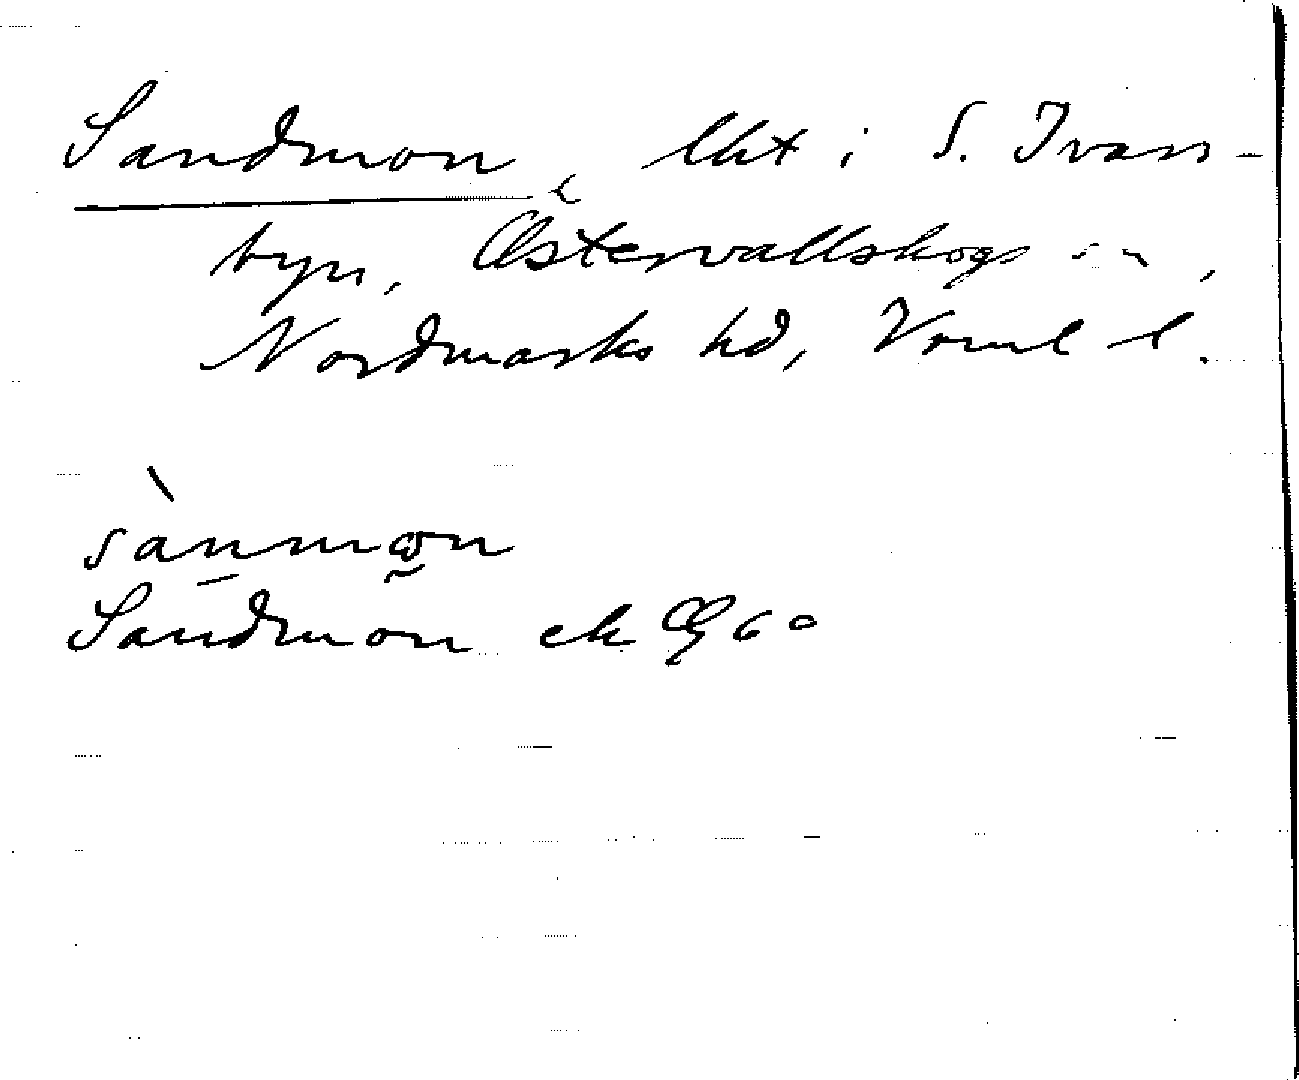 Sandmon, lht i S. Ivars-
byn, Östervallskogs sn,
Nordmarks hd, Verml l.
sànmωn
Sandmon ek 60